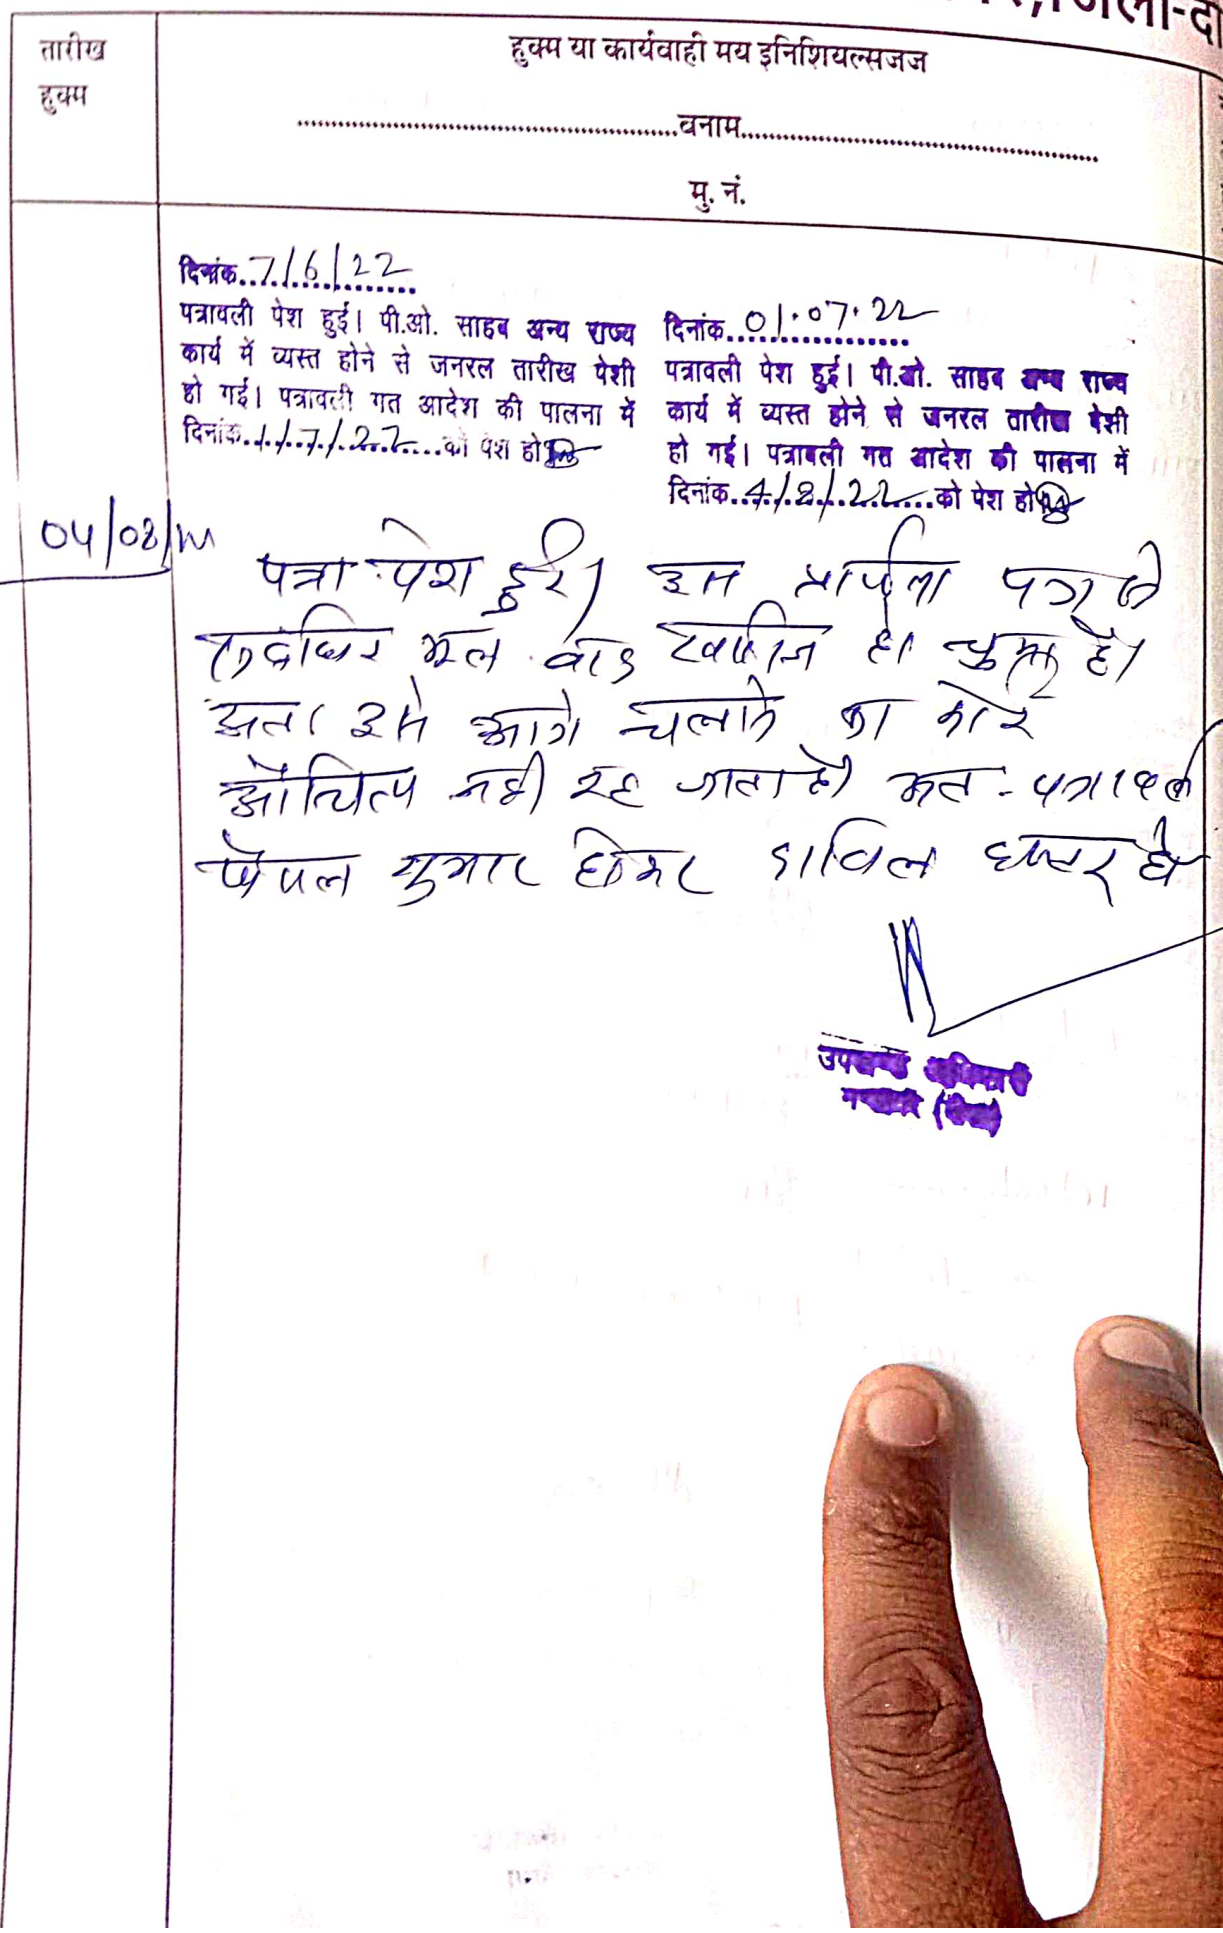 जिला-दौ
तारीख
हुक्म
हुक्म या कार्यवाही मय इनिशियल्सजज
........................................बनाम........................................
मु. नं.
दिनांक..7/6/22
पत्रावली पेश हुई। पी.ओ. साहब अन्य राज्य
कार्य में व्यस्त होने से जनरल तारीख पेशी
हो गई। पत्रावली गत आदेश की पालना में
दिनांक..1/7/22....को पेश हो
दिनांक..01.07.22
पत्रावली पेश हुई। पी.ओ. साहब अन्य राज्य
कार्य में व्यस्त होने से जनरल तारीख पेशी
हो गई। पत्रावली गत आदेश की पालना में
दिनांक..4/8/22....को पेश हो
04/08/22
पत्रा पेश हुई। इस प्रार्थना पत्र से
मूल वाद खारिज हो चुका है।
अतः इसे आगे चलाने का कोई
औचित्य नहीं रह जाता है। अतः पत्रावली
फैसल शुमार होकर दाखिल दफ्तर हो
उपखण्ड अधिकारी